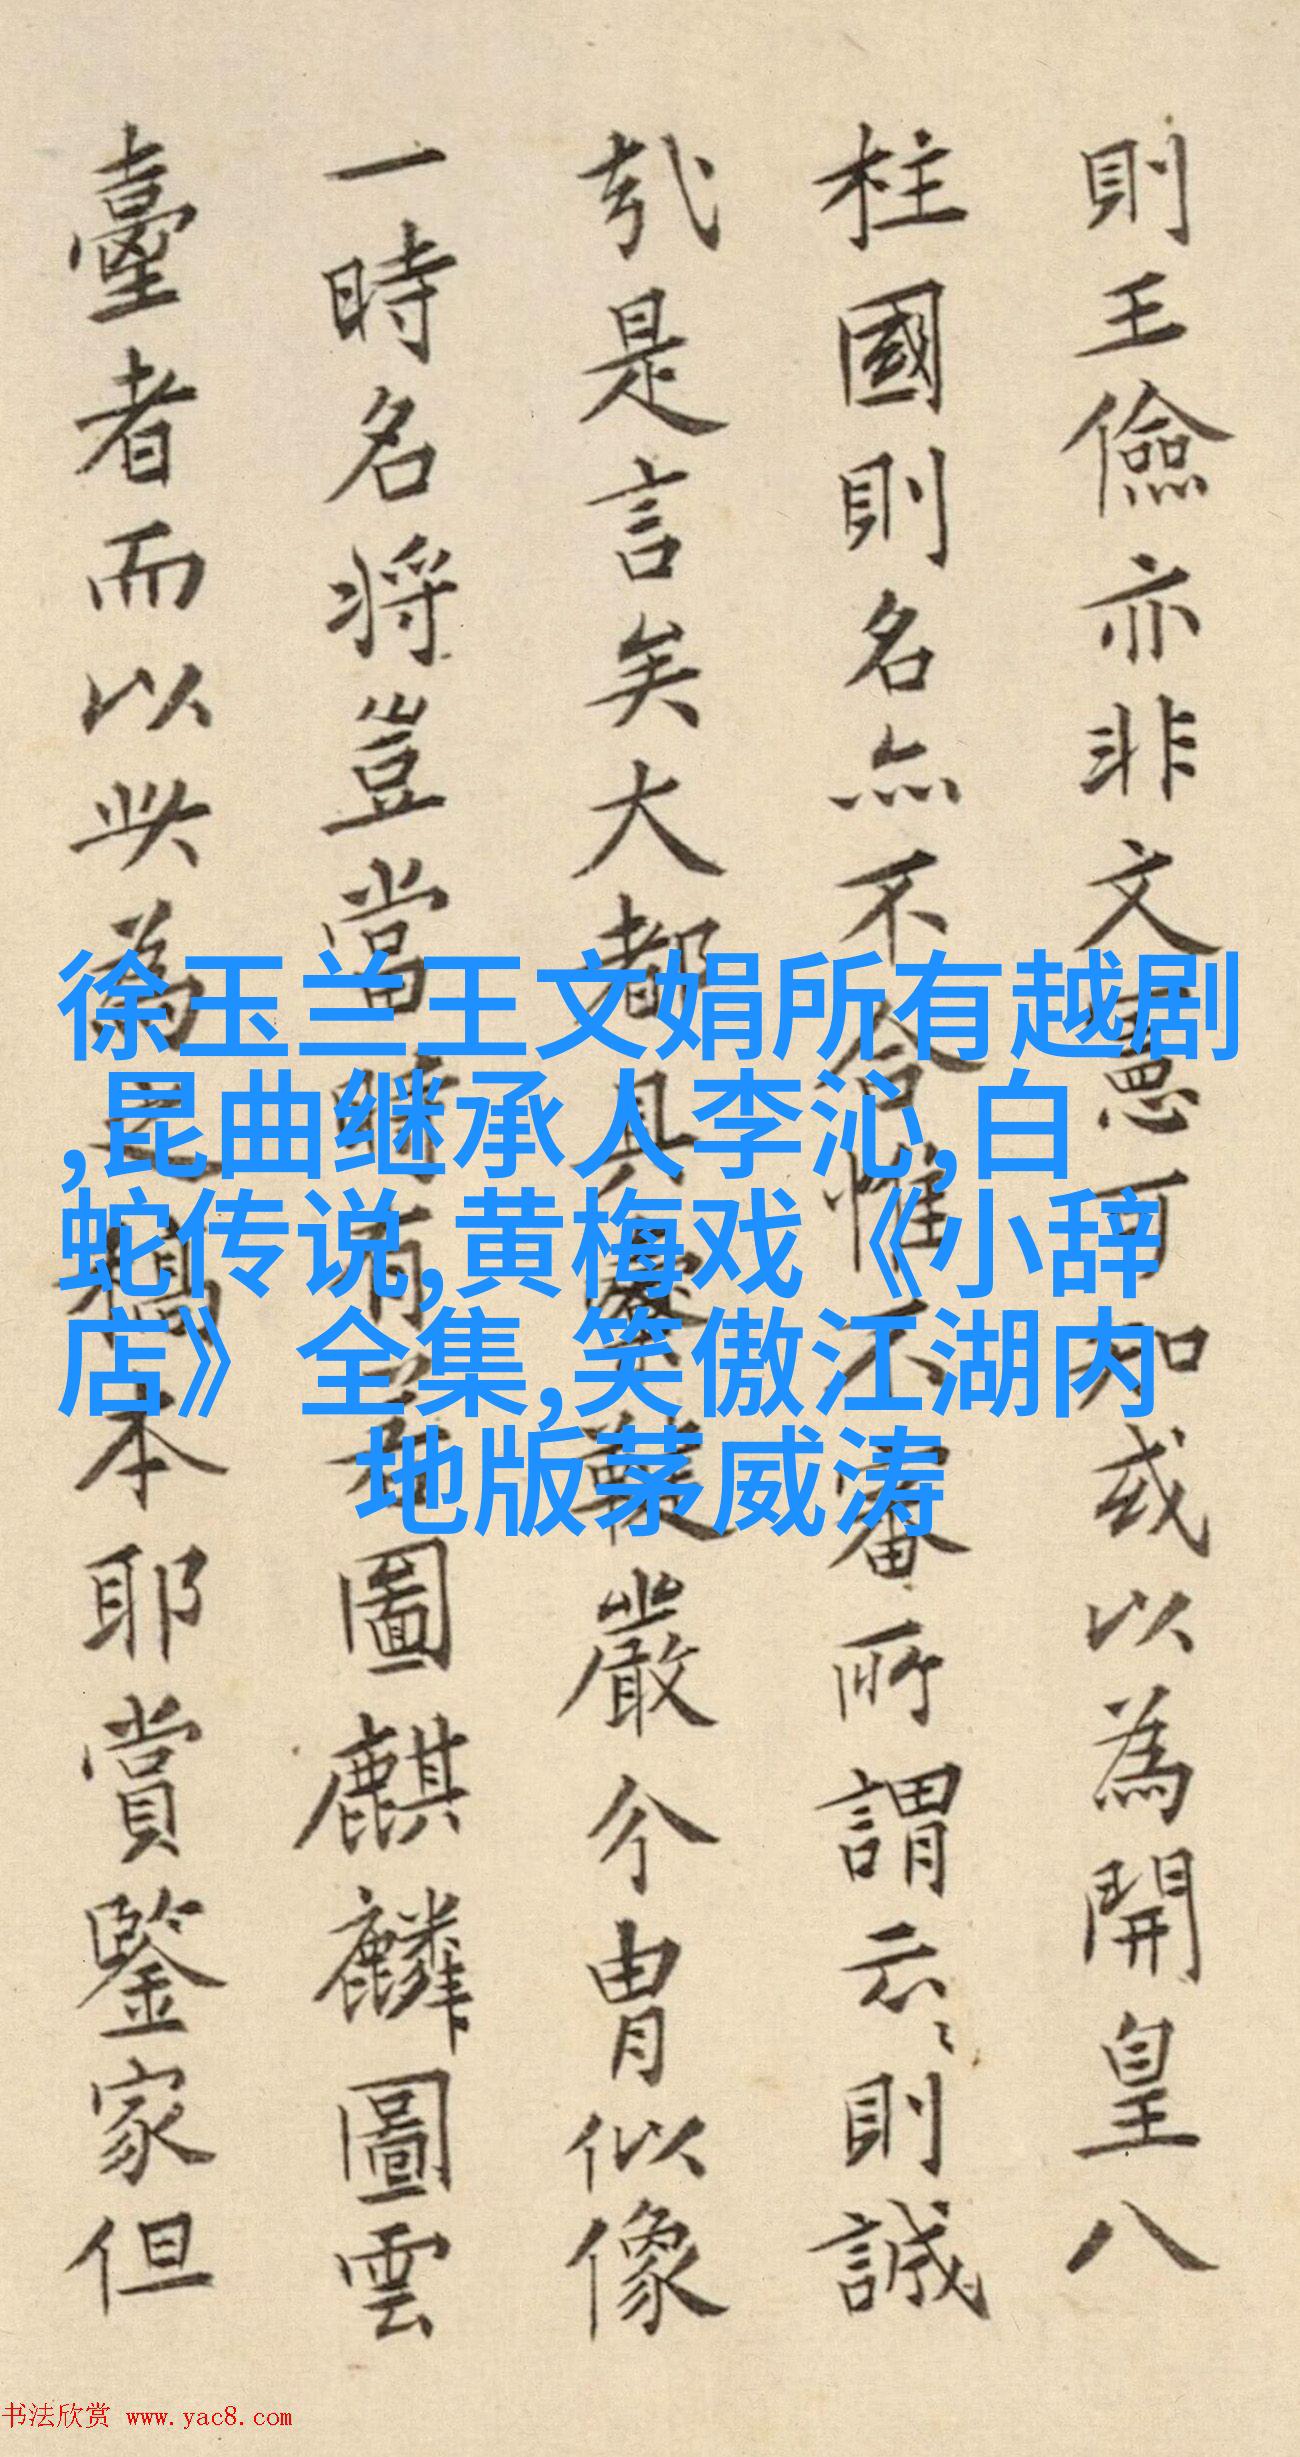 則王儉亦非文憲可知或以為開皇八
柱國則名亦不合惟不審所謂云〻則誠
哉是言矣大都具嚴介冑似像
一時名将豈當時有圖麒麟圖雲
臺者而以此為之本耶賞鑒家但
徐玉兰王文娟所有越剧
,昆曲继承人李沁,白
蛇传说,黄梅戏《小辞
店》全集,笑傲江湖内
地版茅威涛
书法欣赏 www.yac8.com